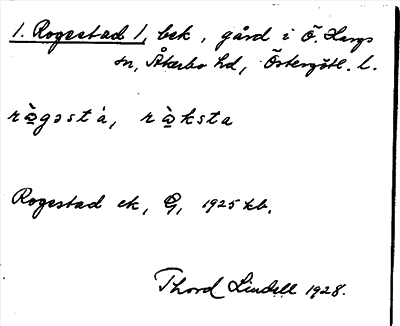 1. Rogestad 1, bek, gård i Ö. Hargs
sn, Åkerbo hd, Östergötl. l.
rògəstà, ròksta
Rogestad ek, G, 1925 kb.
Thord Lindell 1928.